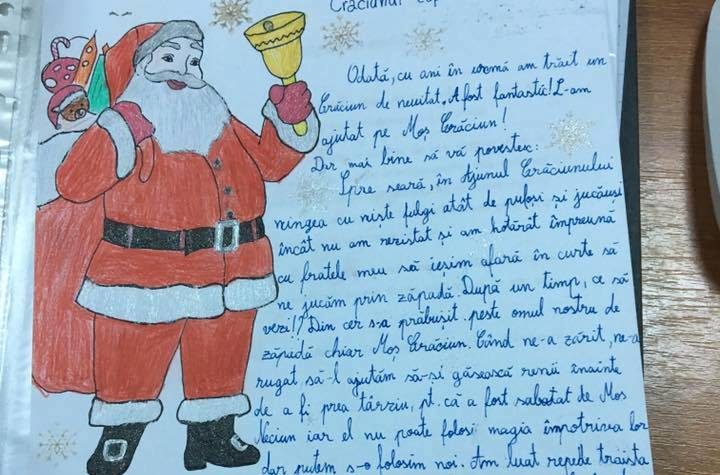 Crăciunul cop
Odată, cu ani în urmă am trăit un
Crăciun de neuitat. A fost fantastic! L-am
ajutat pe Moș Crăciun!
Dar mai bine să vă povestex:
Spre seară, în Ajunul Crăciunului
ningea cu niște fulgi atât de pufoși și jucăuși
încât nu am rezistat și am hotărât împreună
cu fratele meu să ieșim afară în curte să
ne jucăm prin zăpadă. După un timp, ce să
vezi!? Din cer s-a prăbușit peste omul nostru de
zăpadă chiar Moș Crăciun. Când ne-a zărit, ne-a
rugat să-l ajutăm să-și găsească renii înainte
de a fi prea târziu, pt. că a fost sabotat de Moș
Neciun iar el nu poate folosi magia împotrivirea lor
dar putem s-o folosim noi. Am luat repede traista